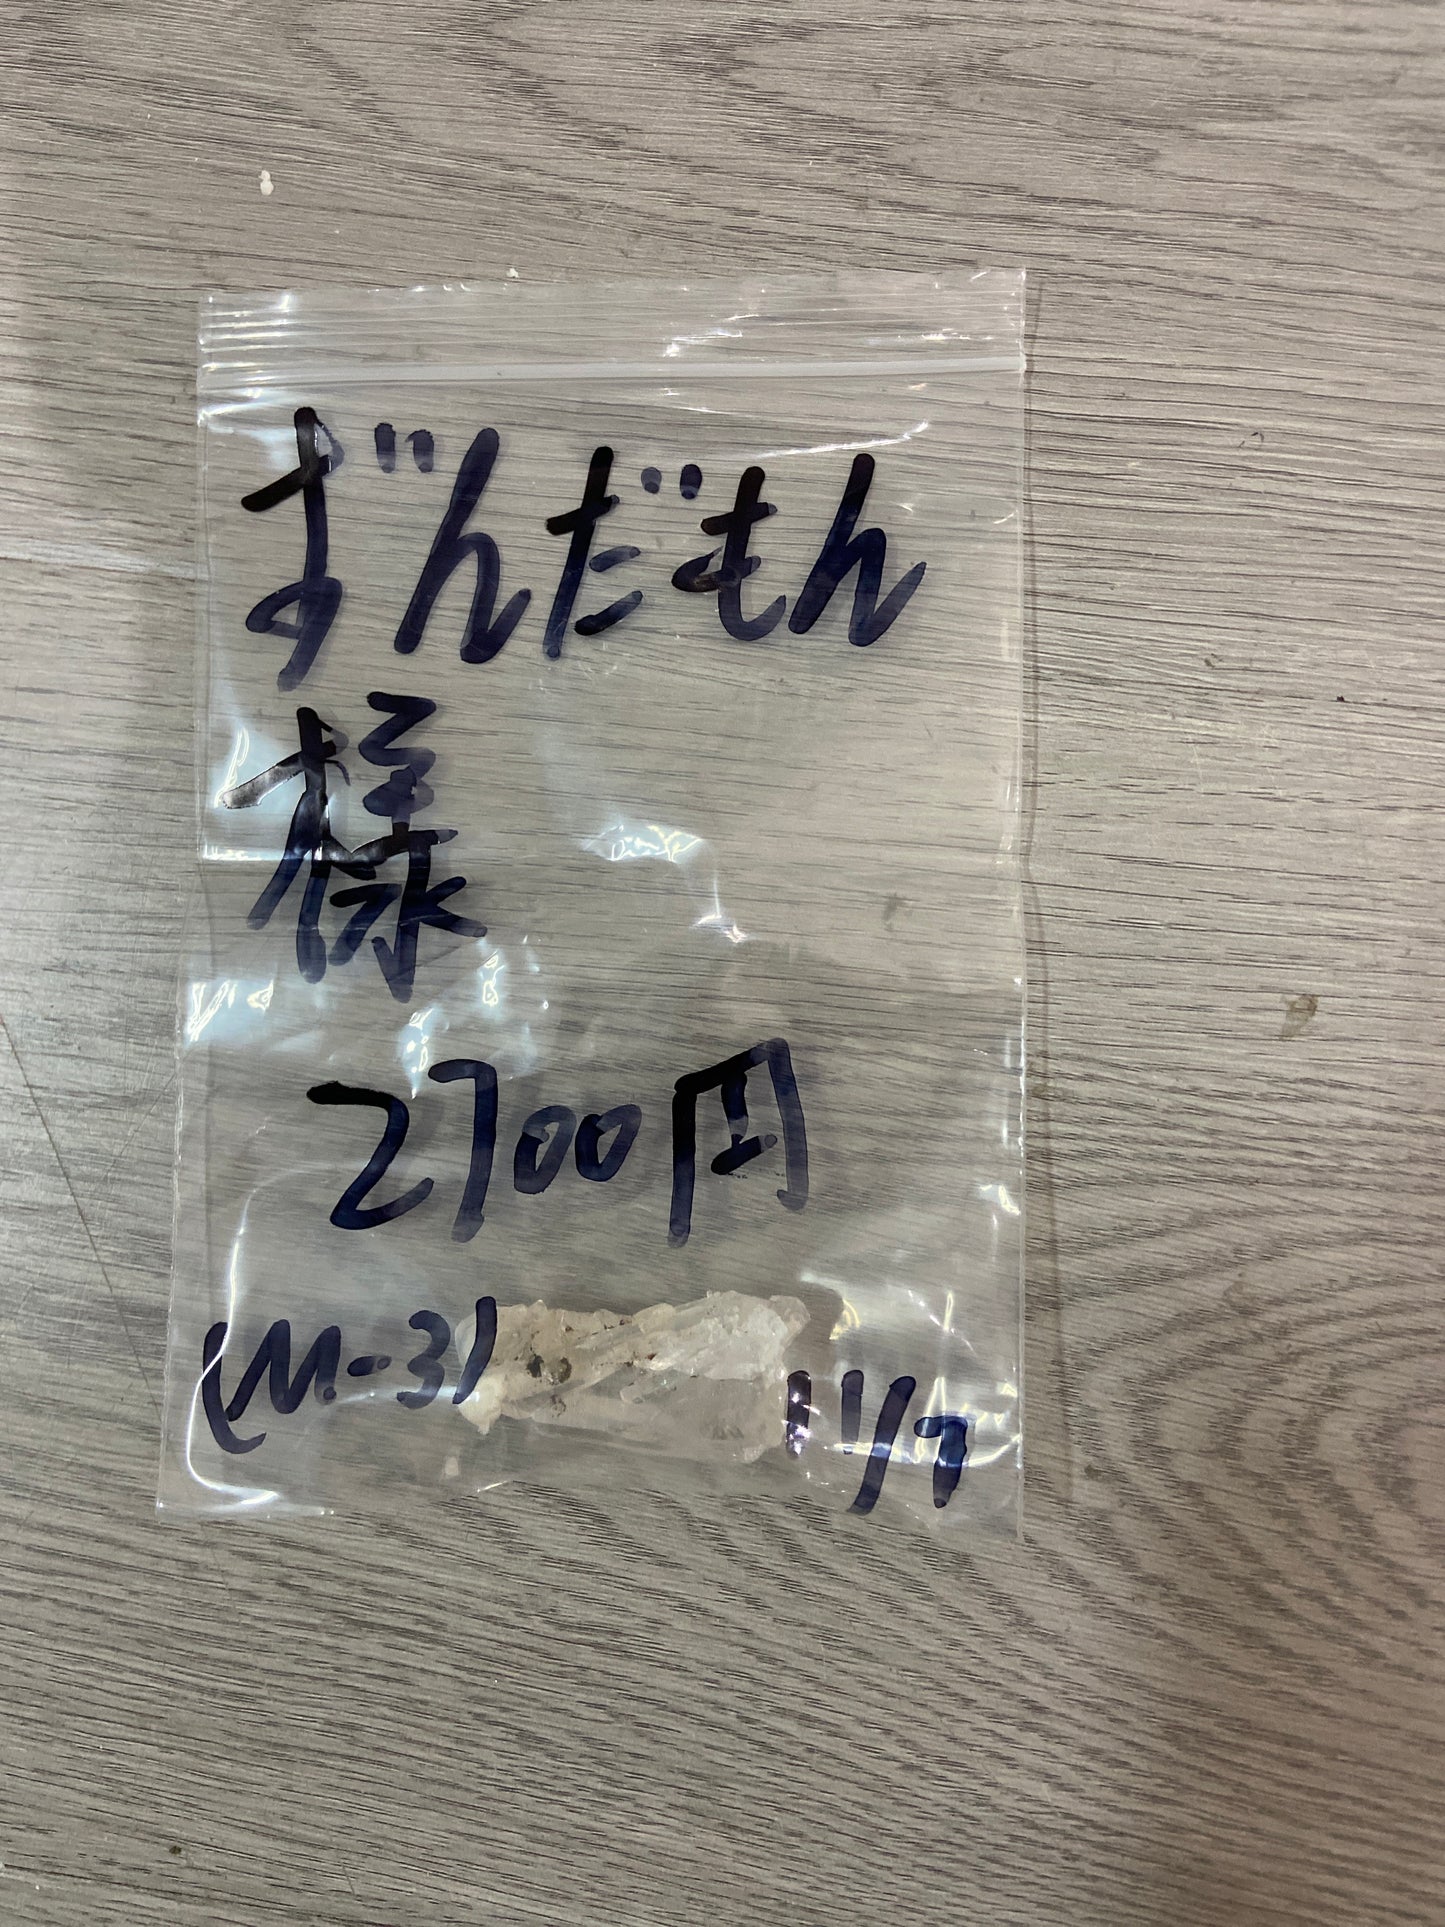 ずんだもん
様
2700円
(M-3) 11/7